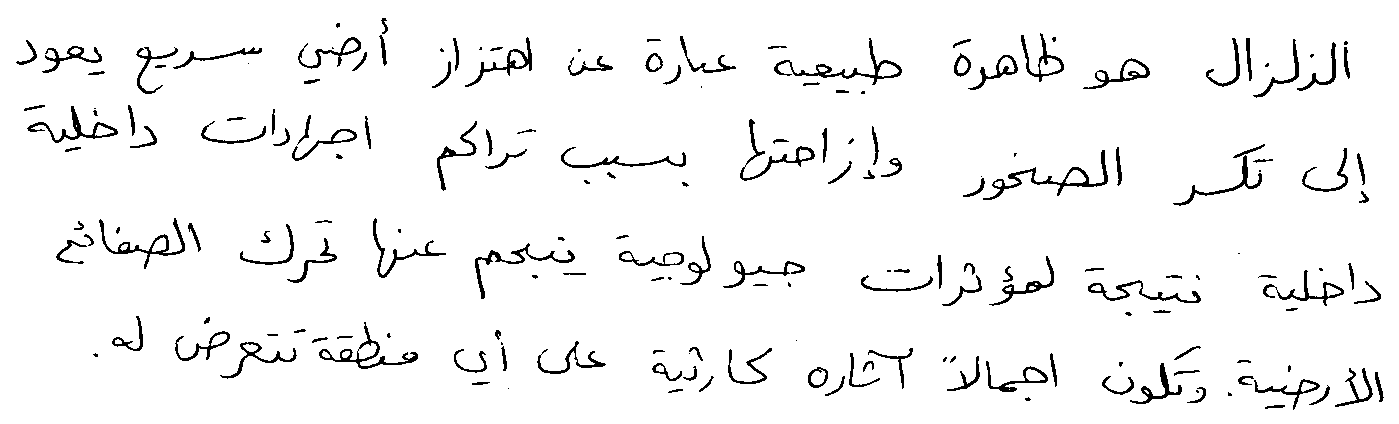 الزلزال هو ظاهرة طبيعية عبارة عن اهتزاز أرضي سريع يعود
إلى تكسر الصخور وإزاحتها بسبب تراكم اجهادات داخلية
داخلية نتيجة لمؤثرات جيولوجية ينجم عنها تحرك الصفائح
الأرضية. وتكون اجمالاً آثاره كارثية على أي منطقة تتعرض له.